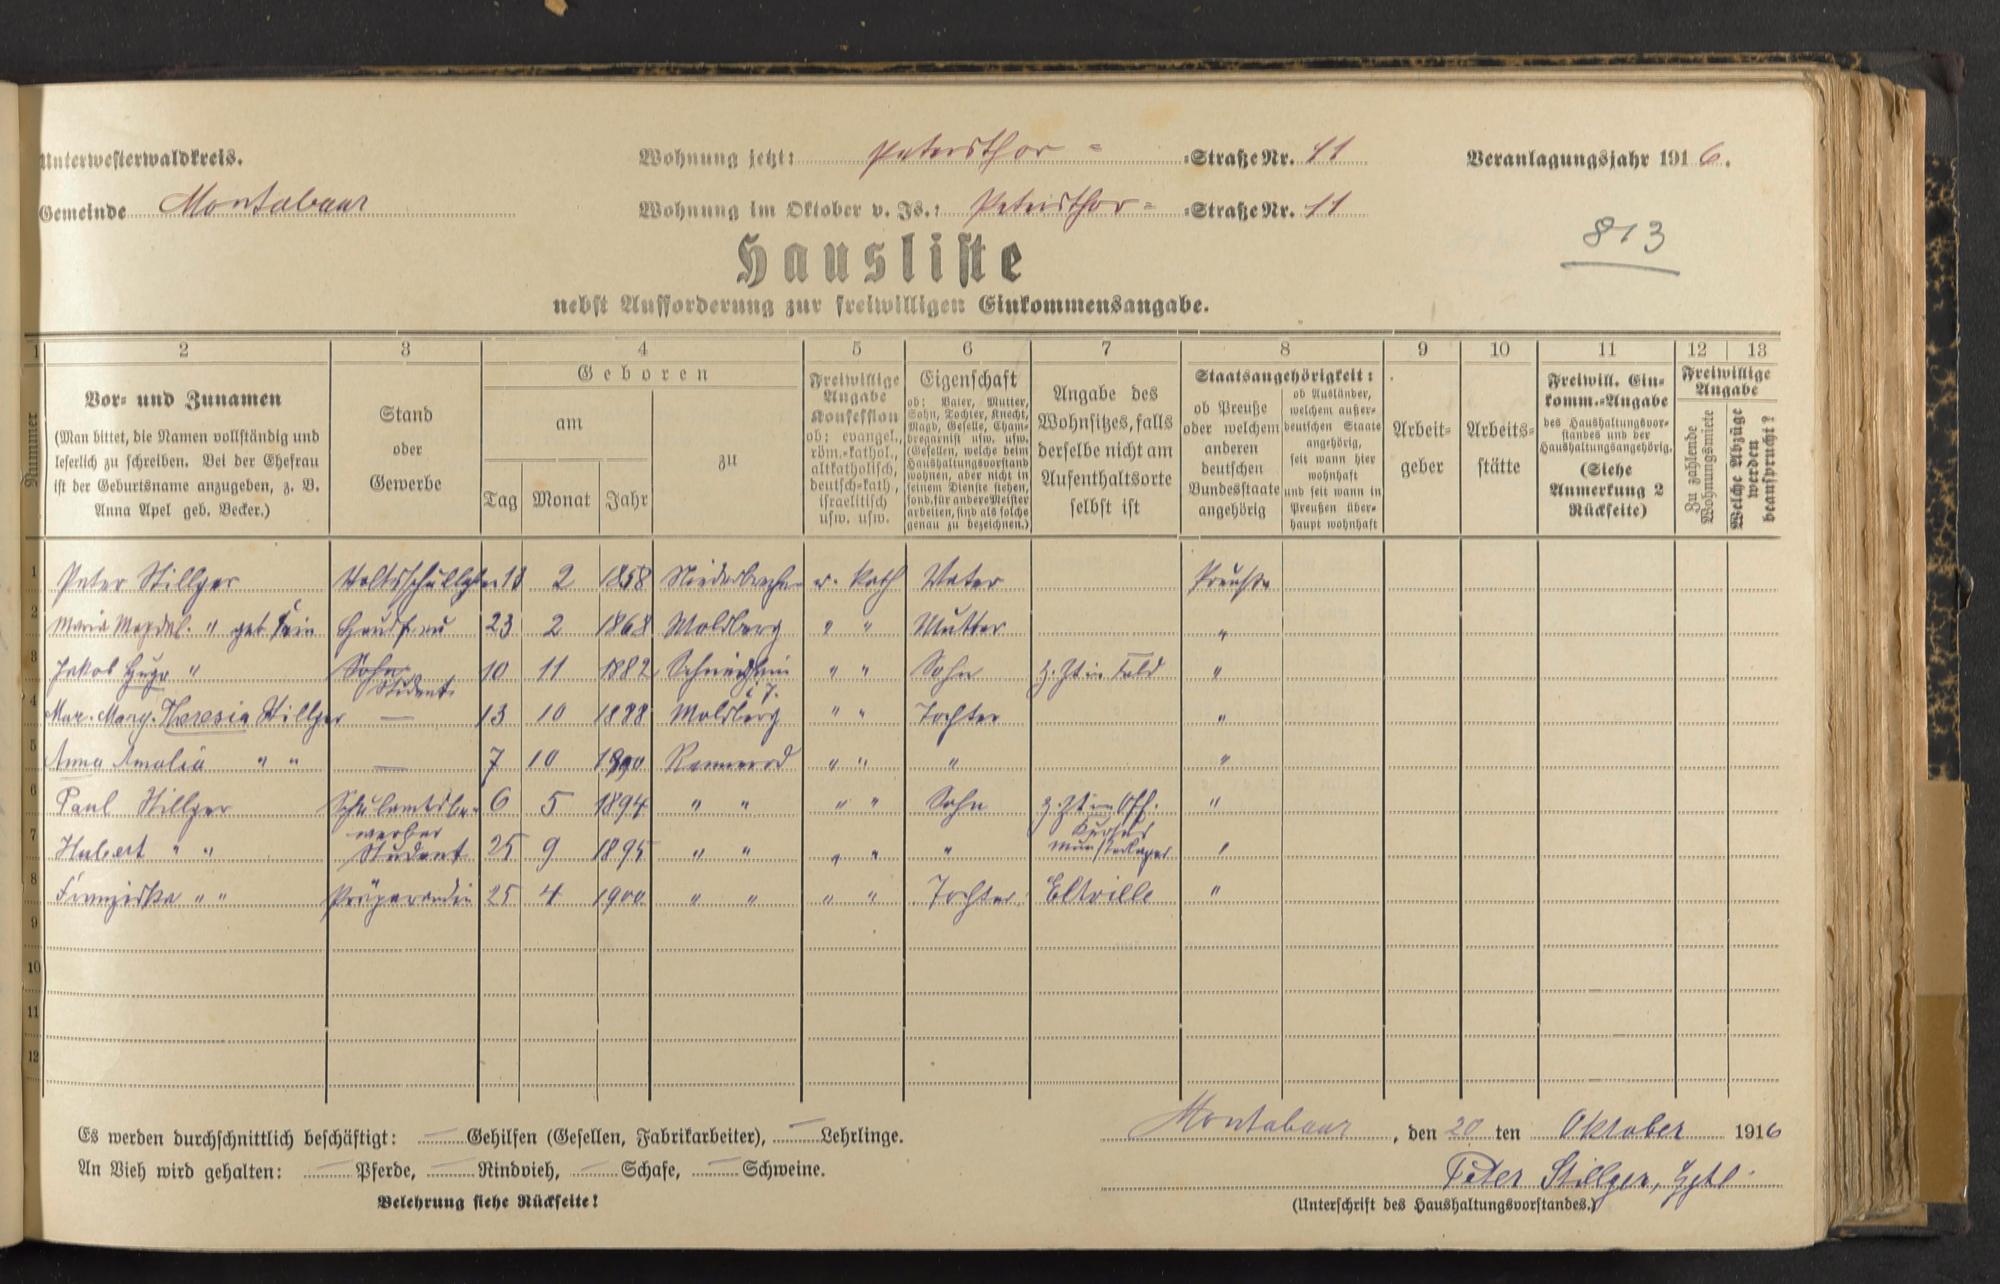 Unterwesterwaldkreis.
Wohnung jetzt: Petersthor- =Straße Nr. 11
Veranlagungsjahr 1916.
Gemeinde Montabaur
Wohnung im Oktober v. Js.: Petersthor- =Straße Nr. 11
813
Hausliste
nebst Aufforderung zur freiwilligen Einkommensangabe.
1 2 3 4 5 6 7 8 9 10 11 12 13
Nummer
Vor- und Zunamen
(Man bittet, die Namen vollständig und
leserlich zu schreiben. Bei der Ehefrau
ist der Geburtsname anzugeben, z. B.
Anna Apel geb. Becker.)
Stand
oder
Gewerbe
Geboren
am
Tag Monat Jahr
zu
Freiwillige
Angabe
Konfession
ob: evangel.,
röm.-kathol.,
altkatholisch,
deutsch-kath.,
israelitisch
usw. usw.
Eigenschaft
ob: Vater, Mutter,
Sohn, Tochter, Knecht,
Magd, Geselle, Cham-
bregarnist usw. usw.
(Gesellen, welche beim
Haushaltungsvorstand
wohnen, aber nicht in
seinem Dienste stehen,
sond. für andere Meister
arbeiten, sind als solche
genau zu bezeichnen.)
Angabe des
Wohnsitzes, falls
derselbe nicht am
Aufenthaltsorte
selbst ist
Staatsangehörigkeit:
ob Preuße
oder welchem
anderen
deutschen
Bundesstaate
angehörig
ob Ausländer,
welchem außer-
deutschen Staate
angehörig,
seit wann hier
wohnhaft
und seit wann in
Preußen über-
haupt wohnhaft
Arbeit-
geber
Arbeits-
stätte
Freiwill. Ein-
komm.-Angabe
des Haushaltungsvor-
standes und der
Haushaltungsangehörig.
(Siehe
Anmerkung 2
Rückseite)
Freiwillige
Angabe
Zu zahlende
Wohnungsmiete
Welche Abzüge
werden
beansprucht?
1 Peter Stillger 2 1858 r. Kath Vater Preuße
2 Maria Magdal. " geb. Hausfrau 23 2 1868 Molsberg " " Mutter "
3 Jakob Hugo " Sohn Student 10 11 1882 " " Sohn z. Zt im Feld "
4 Mar. Marg. Theresia Stillger — 13 10 1888 Molsberg " " Tochter "
5 Anna Amalia " " — 7 10 1890 Rennerod " " " "
6 Paul Stillger Schulamtsbe- 6 5 1894 " " " " Sohn z. Zt im Off. "
werber Kursus
7 Hubert " " Student 25 9 1895 " " " " " Munsterlager "
8 Franziska " " Präparandin 25 4 1900 " " " " Tochter Eltville "
9
10
11
12
Es werden durchschnittlich beschäftigt: — Gehilfen (Gesellen, Fabrikarbeiter), — Lehrlinge.
An Vieh wird gehalten: — Pferde, — Rindvieh, — Schafe, — Schweine.
Belehrung siehe Rückseite!
Montabaur, den 20 ten Oktober 1916
Peter Stillger,
(Unterschrift des Haushaltungsvorstandes.)